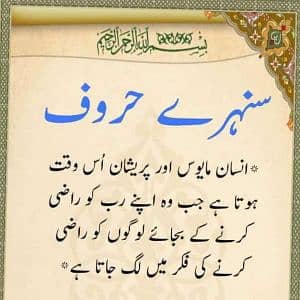 بسم الله الرحمن الرحيم
سنہرے حروف
*انسان مایوس اور پریشان اُس وقت
ہوتا ہے جب وہ اپنے رب کو راضی
کرنے کے بجائے لوگوں کو راضی
کرنے کی فکر میں لگ جاتا ہے*